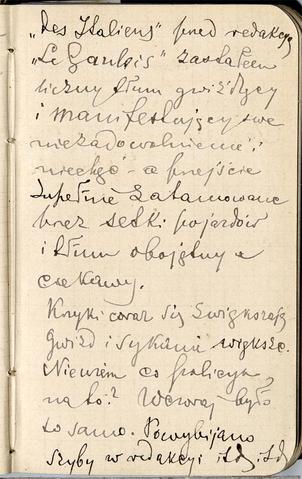 „Des Italiens” pred redakcją
„Le Gaulois” zastałem
liczny tłum gwiżdżący
i manifestujący swe
niezadowolnienie i
niechęć - a przejście
zupełnie zatamowane
przez setki pojazdów
i tłum obojętny a
ciekawy.
Krzyki coraz się zwiększają
Gwizd i sykanie większe.
Niewiem co policya
na to? Wczoraj było
to samo. Powybijano
szyby w redakcyi itd. itd